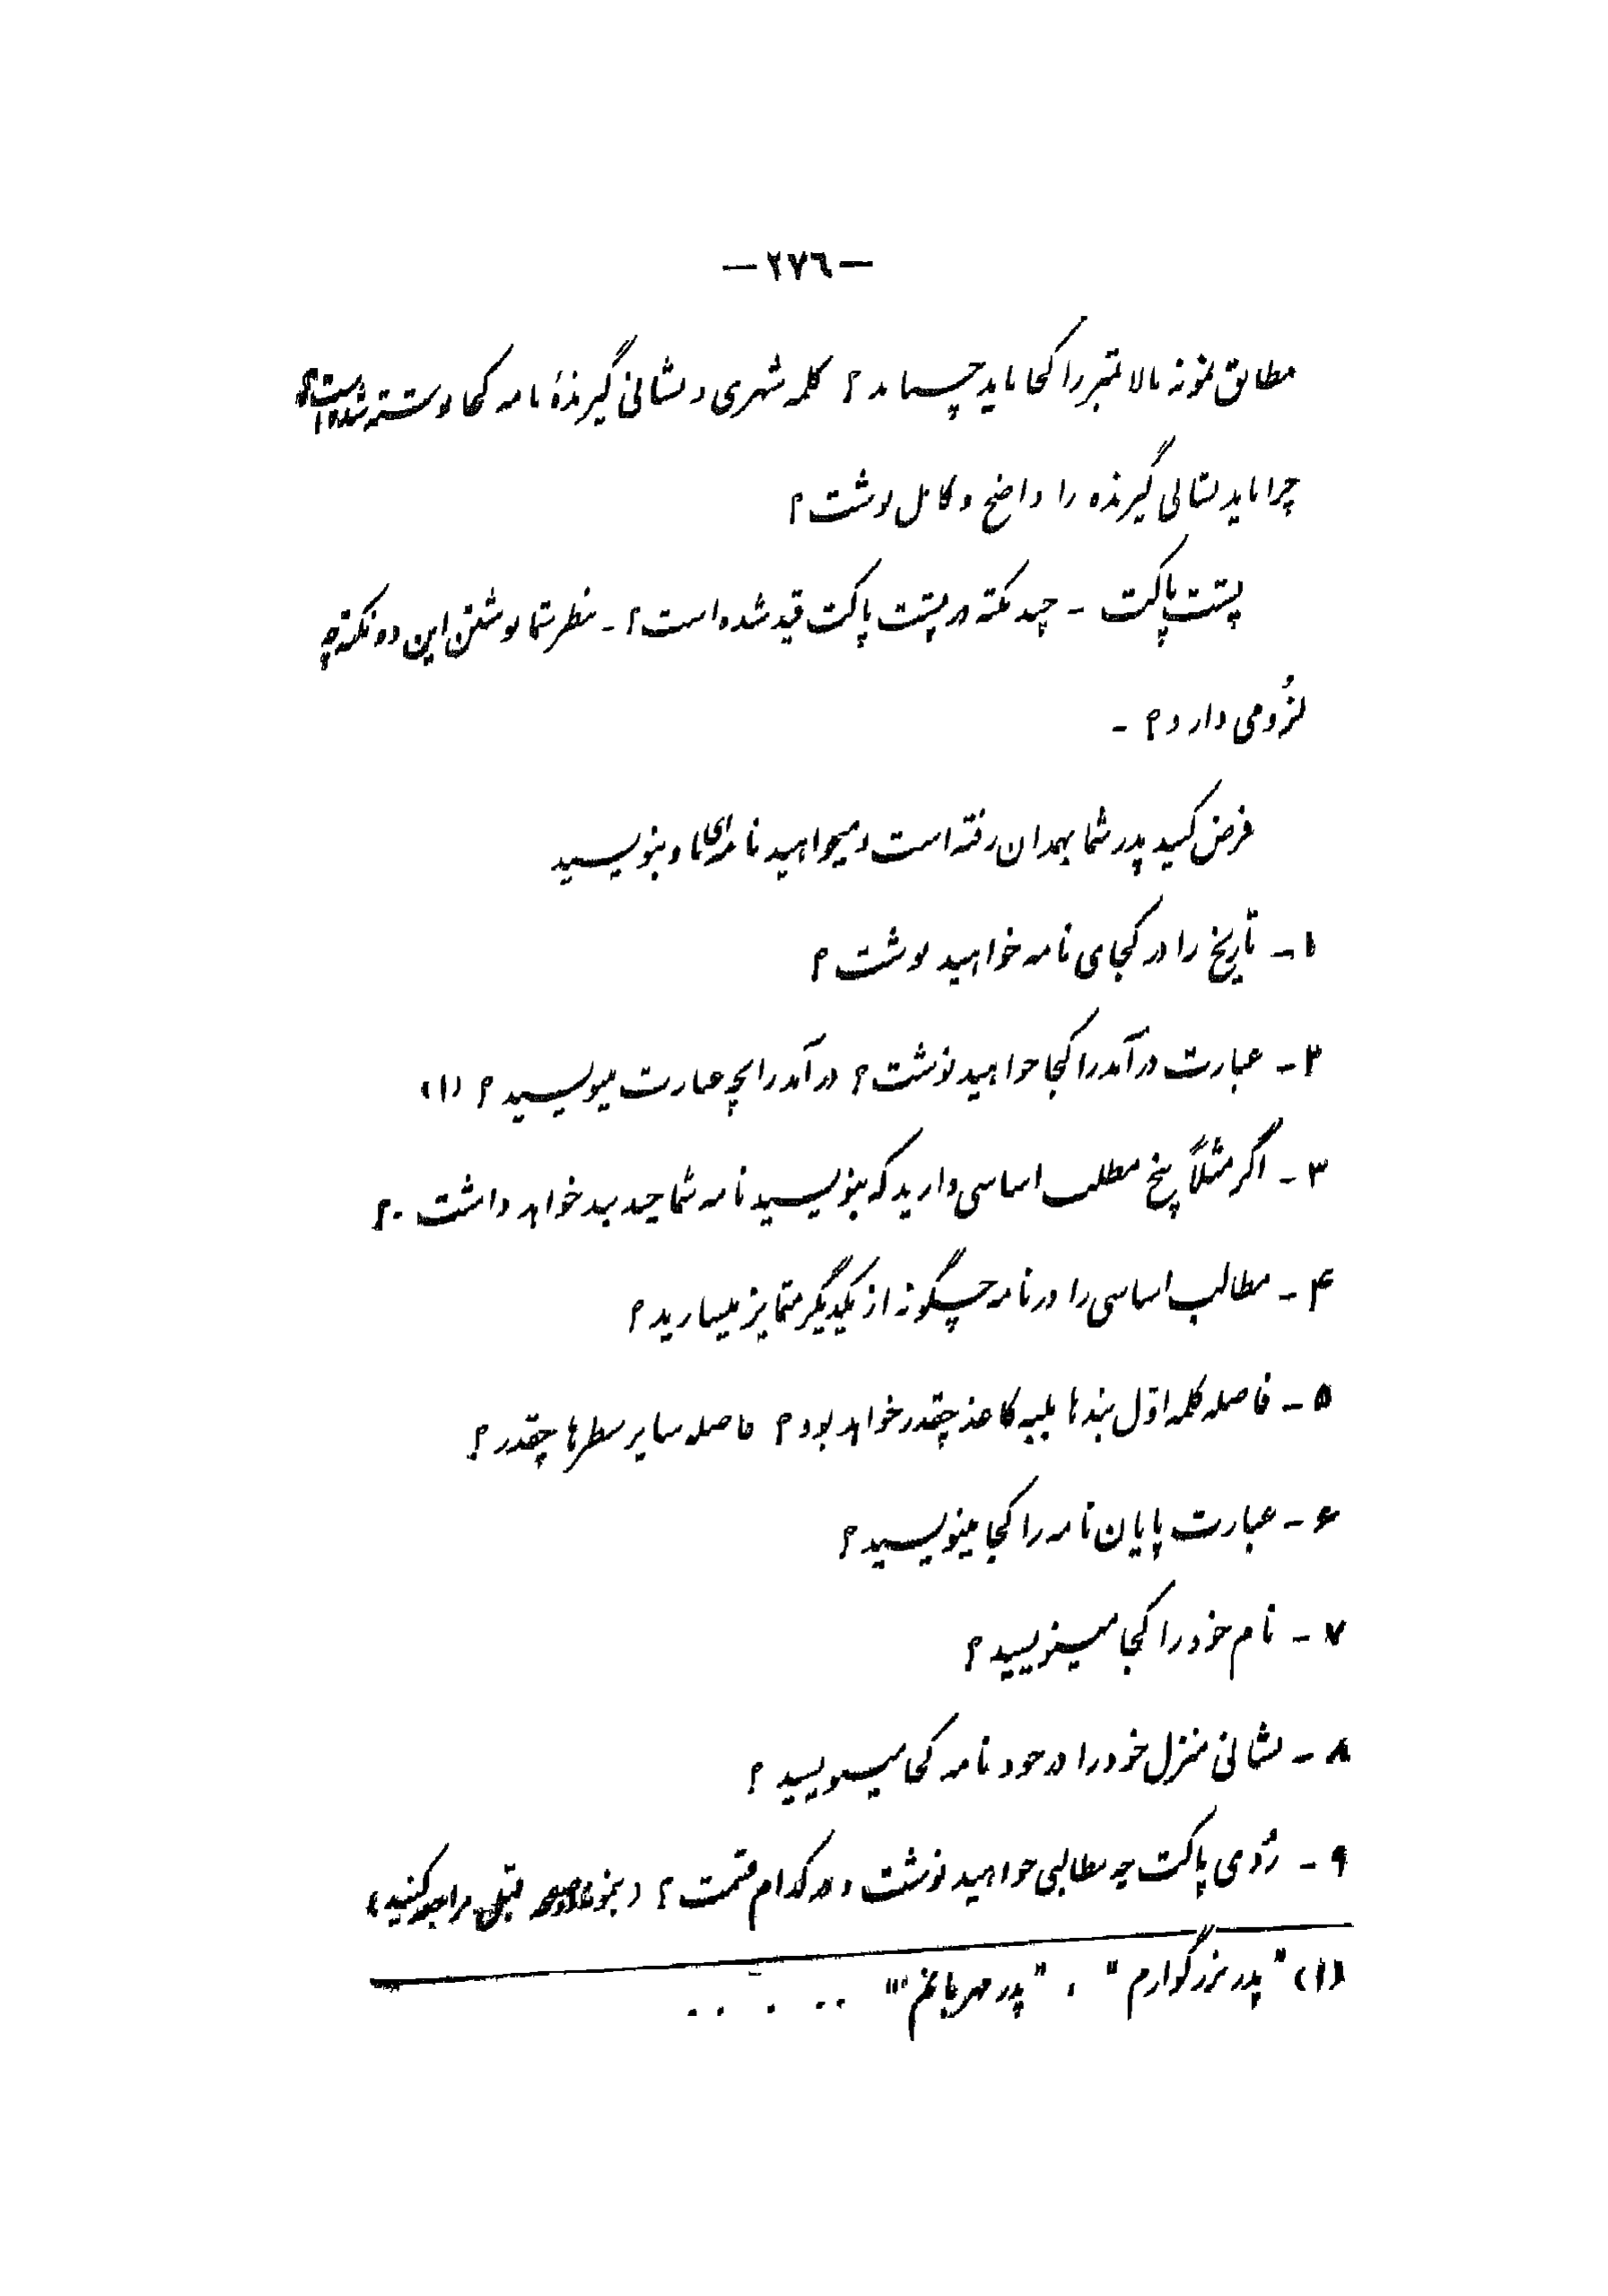 — ۲۷٦ —
مطابق نمونه بالا تمبر را کجا باید چسباند ؟ کلمه شهری و نشانی گیرندهٔ نامه کجا نوشته شده است ؟
چرا باید نشانی گیرنده را واضح و کامل نوشت ؟
پشت پاکت - چند نکته در پشت پاکت قید شده است ؟ - بنظر شما نوشتن این دو نکته چه
لزُومی دارد ؟ -
فرض کنید پدر شما بهمدان رفته است و میخواهید نامه‌ای باو بنویسید
۱ - تاریخ را در کجای نامه خواهید نوشت ؟
۲ - عبارت درآمد را کجا خواهید نوشت ؟ درآمد را بچه عبارت مینویسید ؟ (۱)
۳ - اگر مثلاً پنج مطلب اساسی دارید که بنویسید نامه شما چند بند خواهد داشت ؟
۴ - مطالب اساسی را در نامه چگونه از یکدیگر متمایز میسازید ؟
۵ - فاصله کلمه اوّل بندها بلبه کاغذ چقدر خواهد بود ؟ فاصله سایر سطرها چقدر ؟
۶ - عبارت پایان نامه را کجا مینویسید ؟
۷ - نام خود را کجا مینویسید ؟
۸ - نشانی منزل خود را در خود نامه کجا مینویسید ؟
۹ - رُوی پاکت چه مطالبی خواهید نوشت و در کدام قسمت ؟ ( بنمونه صفحه قبل مراجعه کنید )
(۱) " پدر بزرگوارم " ، " پدر مهربانم " . . . . .